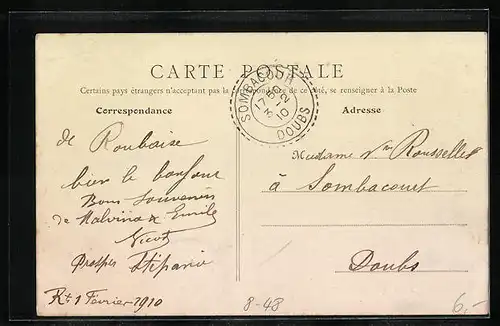 CARTE POSTALE
Certains pays étrangers n'acceptant pas la correspondance de ce côté, se renseigner à la Poste
Correspondance
Adresse
SOMBACOUR
17 50
2
3 10
DOUBS
de Roubaise
bien le bonjour
Bons Souvenirs
de Malvina & Emile
Nicod
Prosper Stépanie
Rx 1 Février 1910
Madame Vve Rousselet
à Sombacourt
Doubs
8-48
6,-